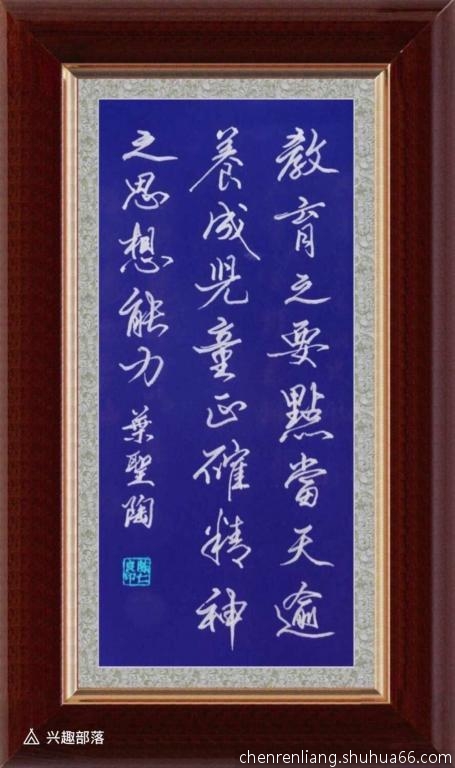 教育之要點當天逾
養成児童正確精神
之思想能力 葉聖陶
陳仁良印
兴趣部落
chenrenliang.shuhua66.com